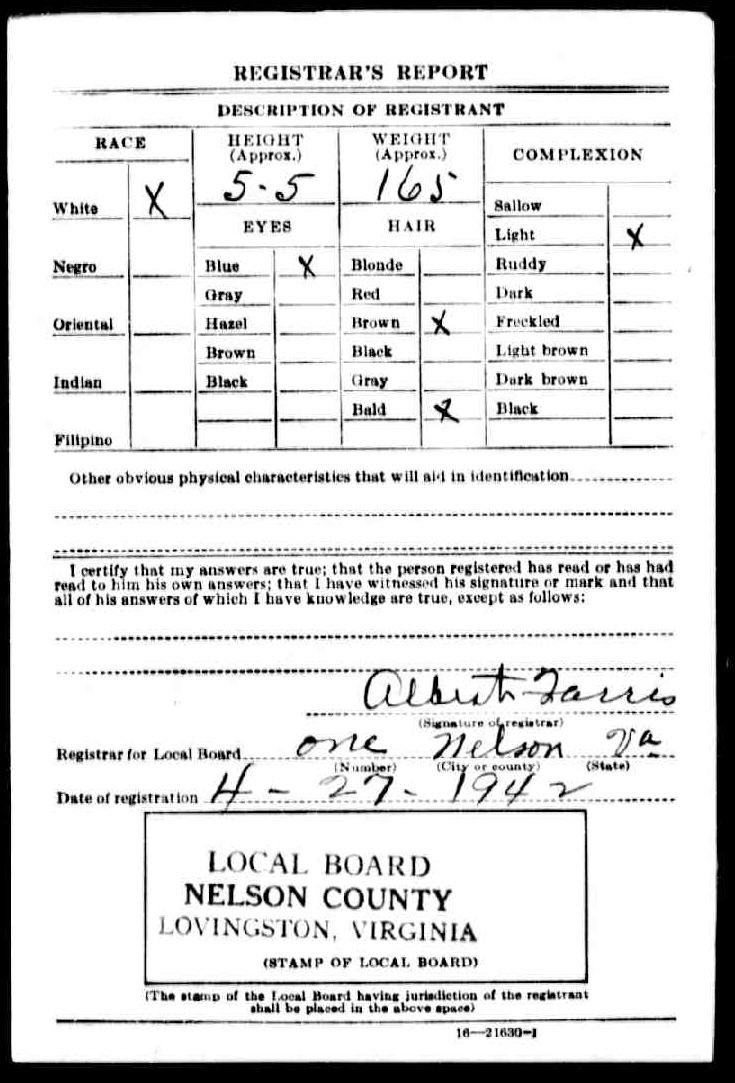 REGISTRAR'S REPORT
DESCRIPTION OF REGISTRANT
RACE
HEIGHT
(Approx.)
WEIGHT
(Approx.)
COMPLEXION
5-5
165
White X
Sallow
EYES
HAIR
Light X
Negro
Blue X
Blonde
Ruddy
Gray
Red
Dark
Oriental
Hazel
Brown X
Freckled
Brown
Black
Light brown
Indian
Black
Gray
Dark brown
Bald X
Black
Filipino
Other obvious physical characteristics that will aid in identification
I certify that my answers are true; that the person registered has read or has had
read to him his own answers; that I have witnessed his signature or mark and that
all of his answers of which I have knowledge are true, except as follows:
Albert Farris
(Signature of registrar)
Registrar for Local Board one Nelson Va
(Number) (City or county) (State)
Date of registration 4-27-1942
LOCAL BOARD
NELSON COUNTY
LOVINGSTON, VIRGINIA
(STAMP OF LOCAL BOARD)
(The stamp of the Local Board having jurisdiction of the registrant
shall be placed in the above space)
16—21630-1